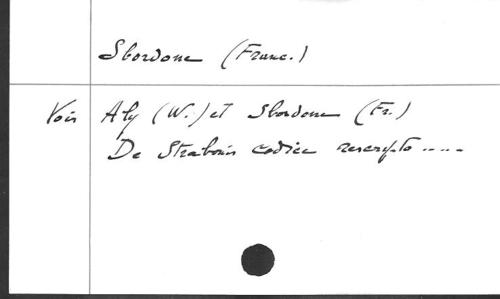 Sbordone (Franc.)
Voir Aly (W.) et Sbordone (Fr.)
De Strabonis codice rescripto .....